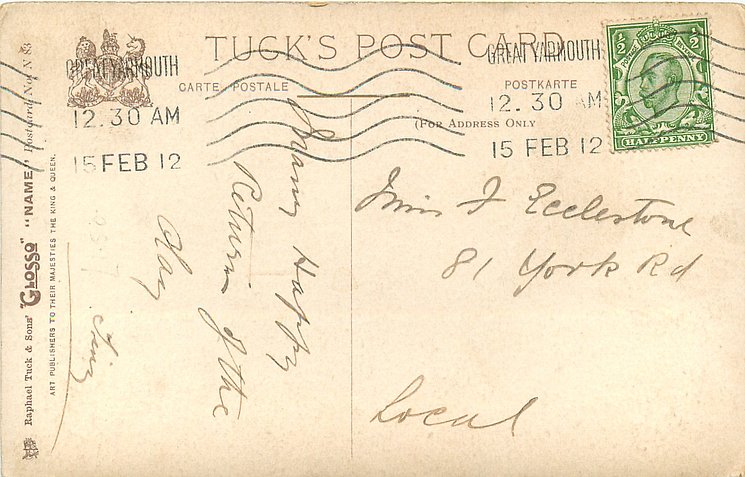 TUCK'S POST CARD
CARTE POSTALE
POSTKARTE
(FOR ADDRESS ONLY
GREAT YARMOUTH
12.30 AM
15 FEB 12
GREAT YARMOUTH
12.30 AM
15 FEB 12
1/2
1/2
POSTAGE
REVENUE
HALFPENNY
Many Happy
Returns of the
Day
Miss F Ecclestone
81 York Rd
Local
Raphael Tuck & Sons' "GLOSSO" "NAME" Postcard No. N 83
ART PUBLISHERS TO THEIR MAJESTIES THE KING & QUEEN.